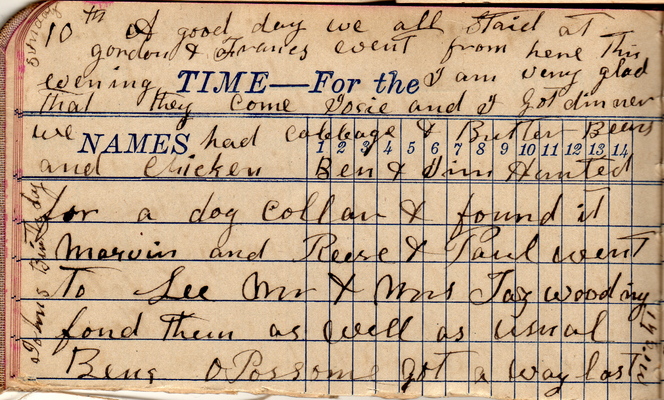 Sunday
10th A good day we all Staid at
gordon & Frances went from here this
evening I am very glad
TIME—For the
that they come Josie and I got dinner
we had cabbage & Butter Beens
NAMES 1 2 3 4 5 6 7 8 9 10 11 12 13 14
and chicken Ben & Jim Hunted
for a dog collar & found it
Marvin and Reese & Paul went
To See Mr & Mrs Jay wooding
fond them as well as usual
Bens oPossome got a way last
John's Birthday